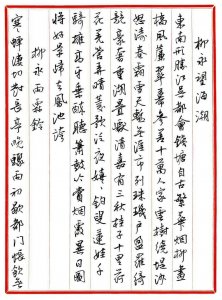 柳永望海潮
東南形勝江吳都會錢塘自古繁華烟柳畫
橋風簾翠幕參差十萬人家雲樹繞堤沙
怒濤卷霜雪天塹無涯市列珠璣戶盈羅綺
競豪奢重湖疊巘清嘉有三秋桂子十里荷
花羌管弄晴菱歌泛夜嬉嬉釣叟蓮娃千
騎擁高牙乘醉聽簫鼓吟賞烟霞異日圖
將好景歸去鳳池誇
柳永雨霖鈴
寒蟬凄切對長亭晚驟雨初歇都門帳飲無